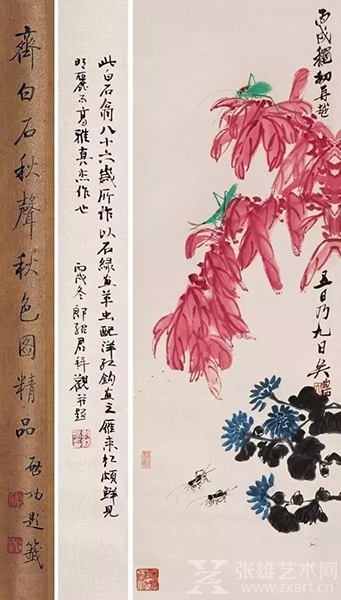 丙戌穐初再越
五日乃九日矣
此白石翁八十六歲所作以石綠畫草虫配洋紅鈎畫之雁來紅頗鮮見
明麗而高雅真杰作也
丙戌冬郎紹君拜觀并題
齊白石秋聲秋色圖精品
啓功題籤
张雄艺术网
www.zxart.cn